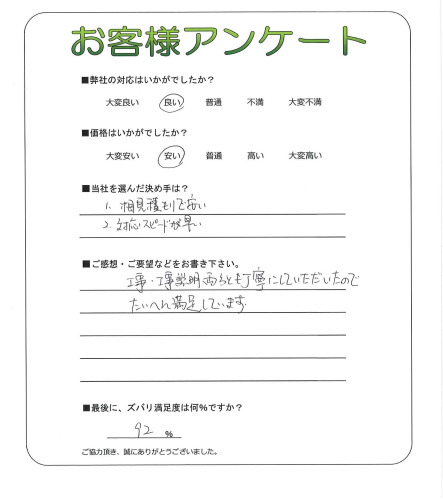 お客様アンケート
■弊社の対応はいかがでしたか？
大変良い 良い 普通 不満 大変不満
■価格はいかがでしたか？
大変安い 安い 普通 高い 大変高い
■当社を選んだ決め手は？
1. 相見積もりで安い
2. 対応スピードが早い
■ご感想・ご要望などをお書き下さい。
工事・工事説明両方とも丁寧にしていただいたので
たいへん満足しています.
■最後に、ズバリ満足度は何%ですか？
92 %
ご協力頂き、誠にありがとうございました。